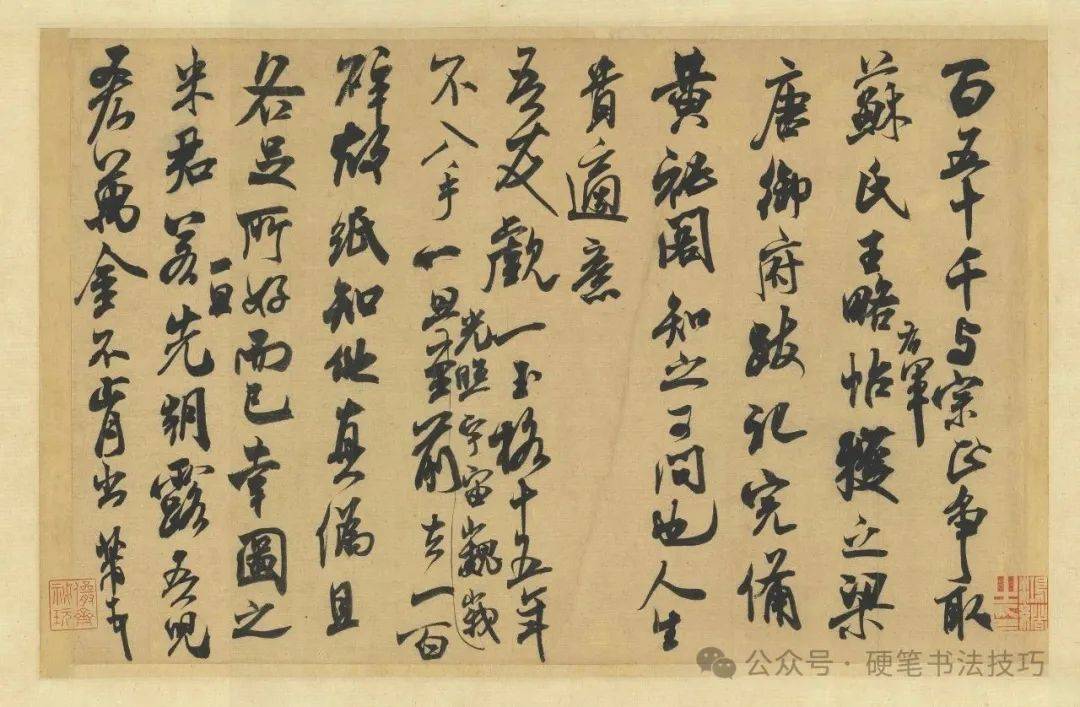 百五十千与宗正争取
蘇氏王略帖右軍獲之梁
唐御府跋記完備
黄祕閣知之可問也人生
貴適意
吾友覷一玉格十五年
不入手一旦光照宇宙巍峩至前去一百
碎故紙知他真偽且
各足所好而已幸圖之
米君若一旦先朝露吾兒
吝萬金不肯出芾頓首
公众号·硬笔书法技巧